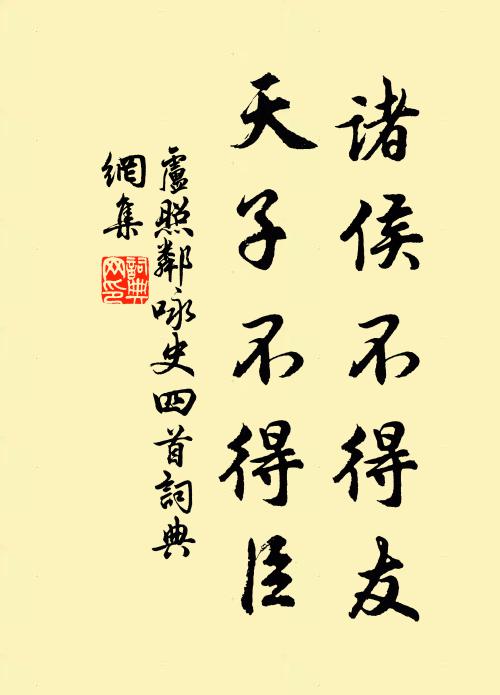 諸侯不得友
天子不得臣
盧照鄰咏史四首詞典
網集
詞典网印